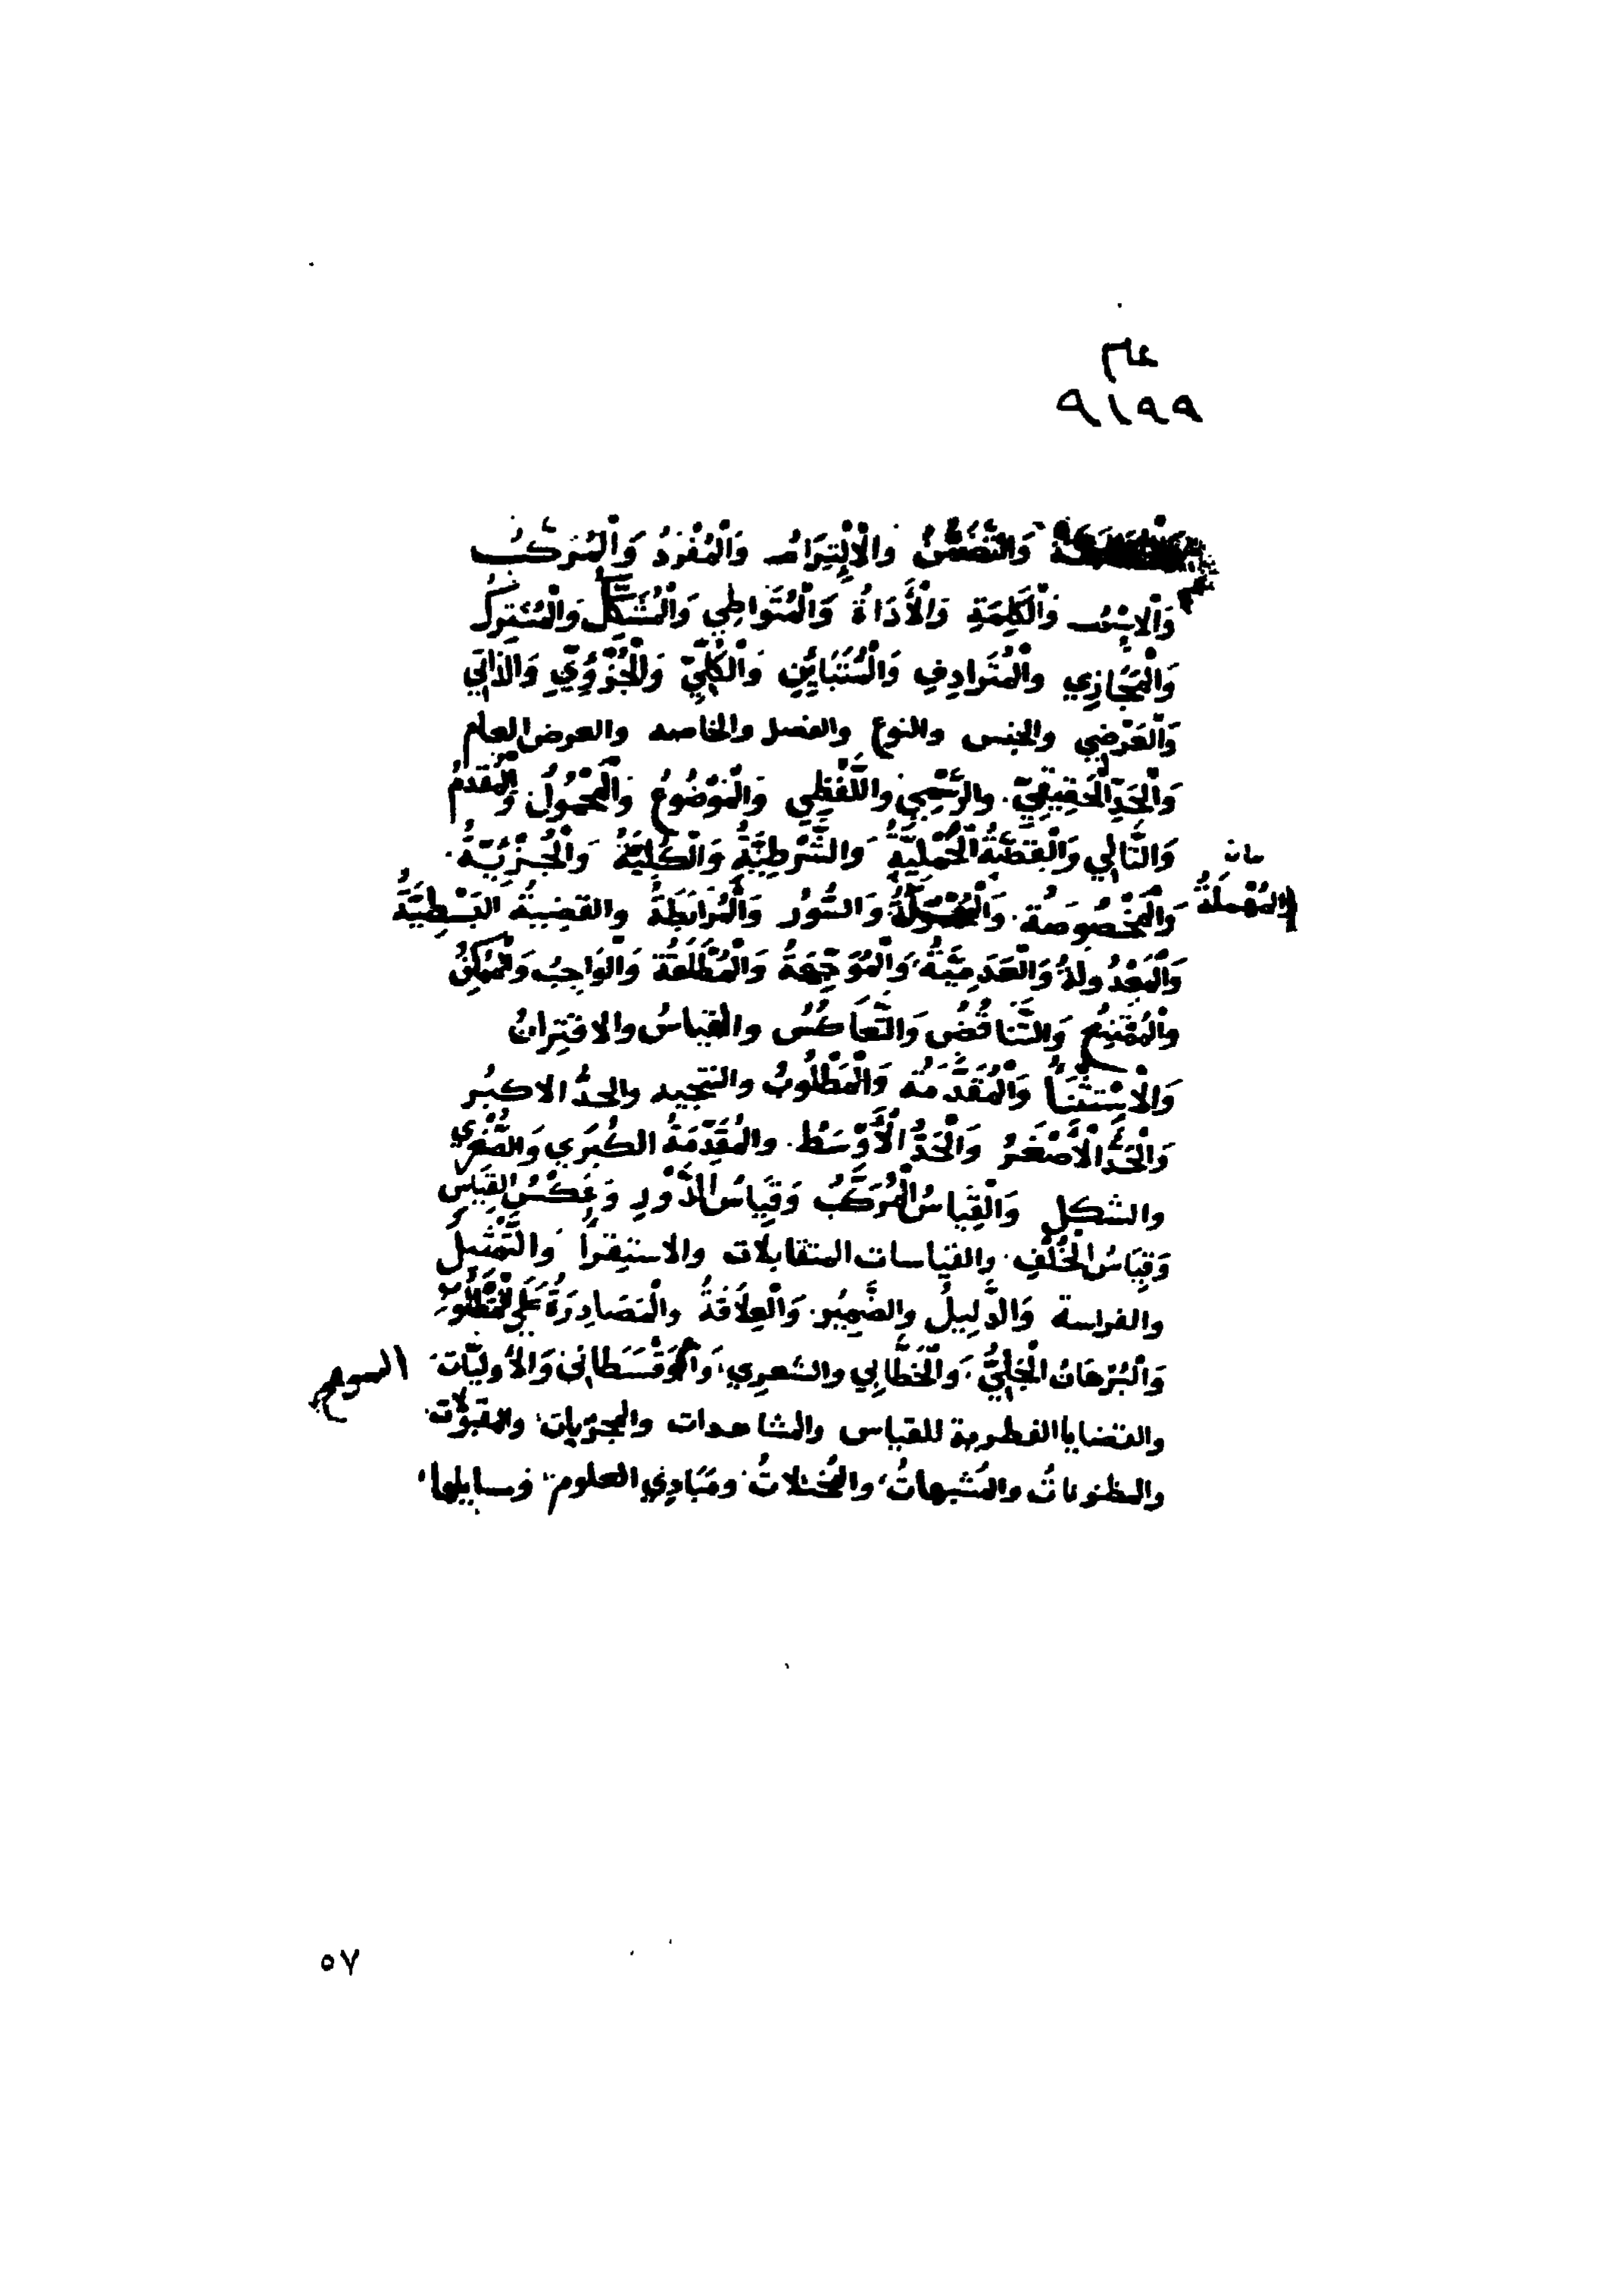 ٩١٩٩
وَالتَّضَمُّنُ والْاِلْتِزَامُ وَالْمُفْرَدُ وَالْمُرَكَّبُ
وَالاسْمُ وَالْكَلِمَةِ وَالْأَدَاةُ وَالْمُتَوَاطِي وَالْمُشَكِّل وَالْمُشْتَرِكُ
وَالْمَجَازِي والْمُتَرَادِفِ وَالْمُتَبَايِنِ وَالْكُلِّيّ وَالْجُزْوِيّ وَالذاتي
وَالْعَرْضِي والجنس والنوع والفصل والخاصه والعرض العام
وَالْحَدّ الْحَقِيقِيّ والرَّسْمِي واللَّفْظِي وَالْمَوْضُوعُ وَالْمَحْمُولُ وَالْمُقَدمُ
وَالتَّالِي وَالْقَضِيَّةُ الْحَمْلِيَّةُ والشَّرْطِيَّةُ وَالْكُلِيَّةُ وَالْجُزْئِيَّةُ
والْمُهْمَلَةُ
وَالْمَخْصُوصَةُ وَالسُّورُ وَالْرَابَطَةُ والقضيةُ البَسْطِيَّةُ
وَالْمَعْدُولةُ وَالْعَدَمِيَّةُ وَالْمُوَجَّهَةُ وَالْمُطْلَقَةُ وَالْوَاجِبُ وَالْمُمْكِنُ
والْمُمْتَنِعُ وَالتَّنَاقُضُ وَالتَّعَاكُسُ والقِيَاسُ والاقتِرانُ
وَالْاِسْتِثْنَاُ وَالْمُقَدَّمَةُ وَالْمَطْلُوبُ والنتيجه والحدُّ الاكبُر
وَالْحَدُّ الْأَصْغَرُ وَالْحَدُّ الْأَوْسَطُ والْمُقَدّمَةُ الكُبرَي وَالصُّغْرَي
والشكل وَالْقِيَاسُ الْمُرَكَّبُ وَقِيَاسُ الدَّوْرِ وَعَكْسُ القِيَاسِ
وَقِيَاسُ الْخُلْفِ والقياسات المتقابلات والاستقراُ والتَّمْثِيلُ
والفراسة وَالدَّلِيلُ والضَّمِيُر وَالْعِلاَقةُ والْمَصَادِرَةُ عَلَي الْمَطْلُوبِ
وَالْبُرْهَانُ الْجَدَلِيُّ وَالْخَطَّابِي والشعرِي وَالأوليَّات
والقضايا الفطرية للقياس والمشاهدات والمجرّبات والمقبولات
والمظنونات والمُشبهاتُ والمُخيّلاتُ ومَبَادِي العلوم ومسايلها
٥٧